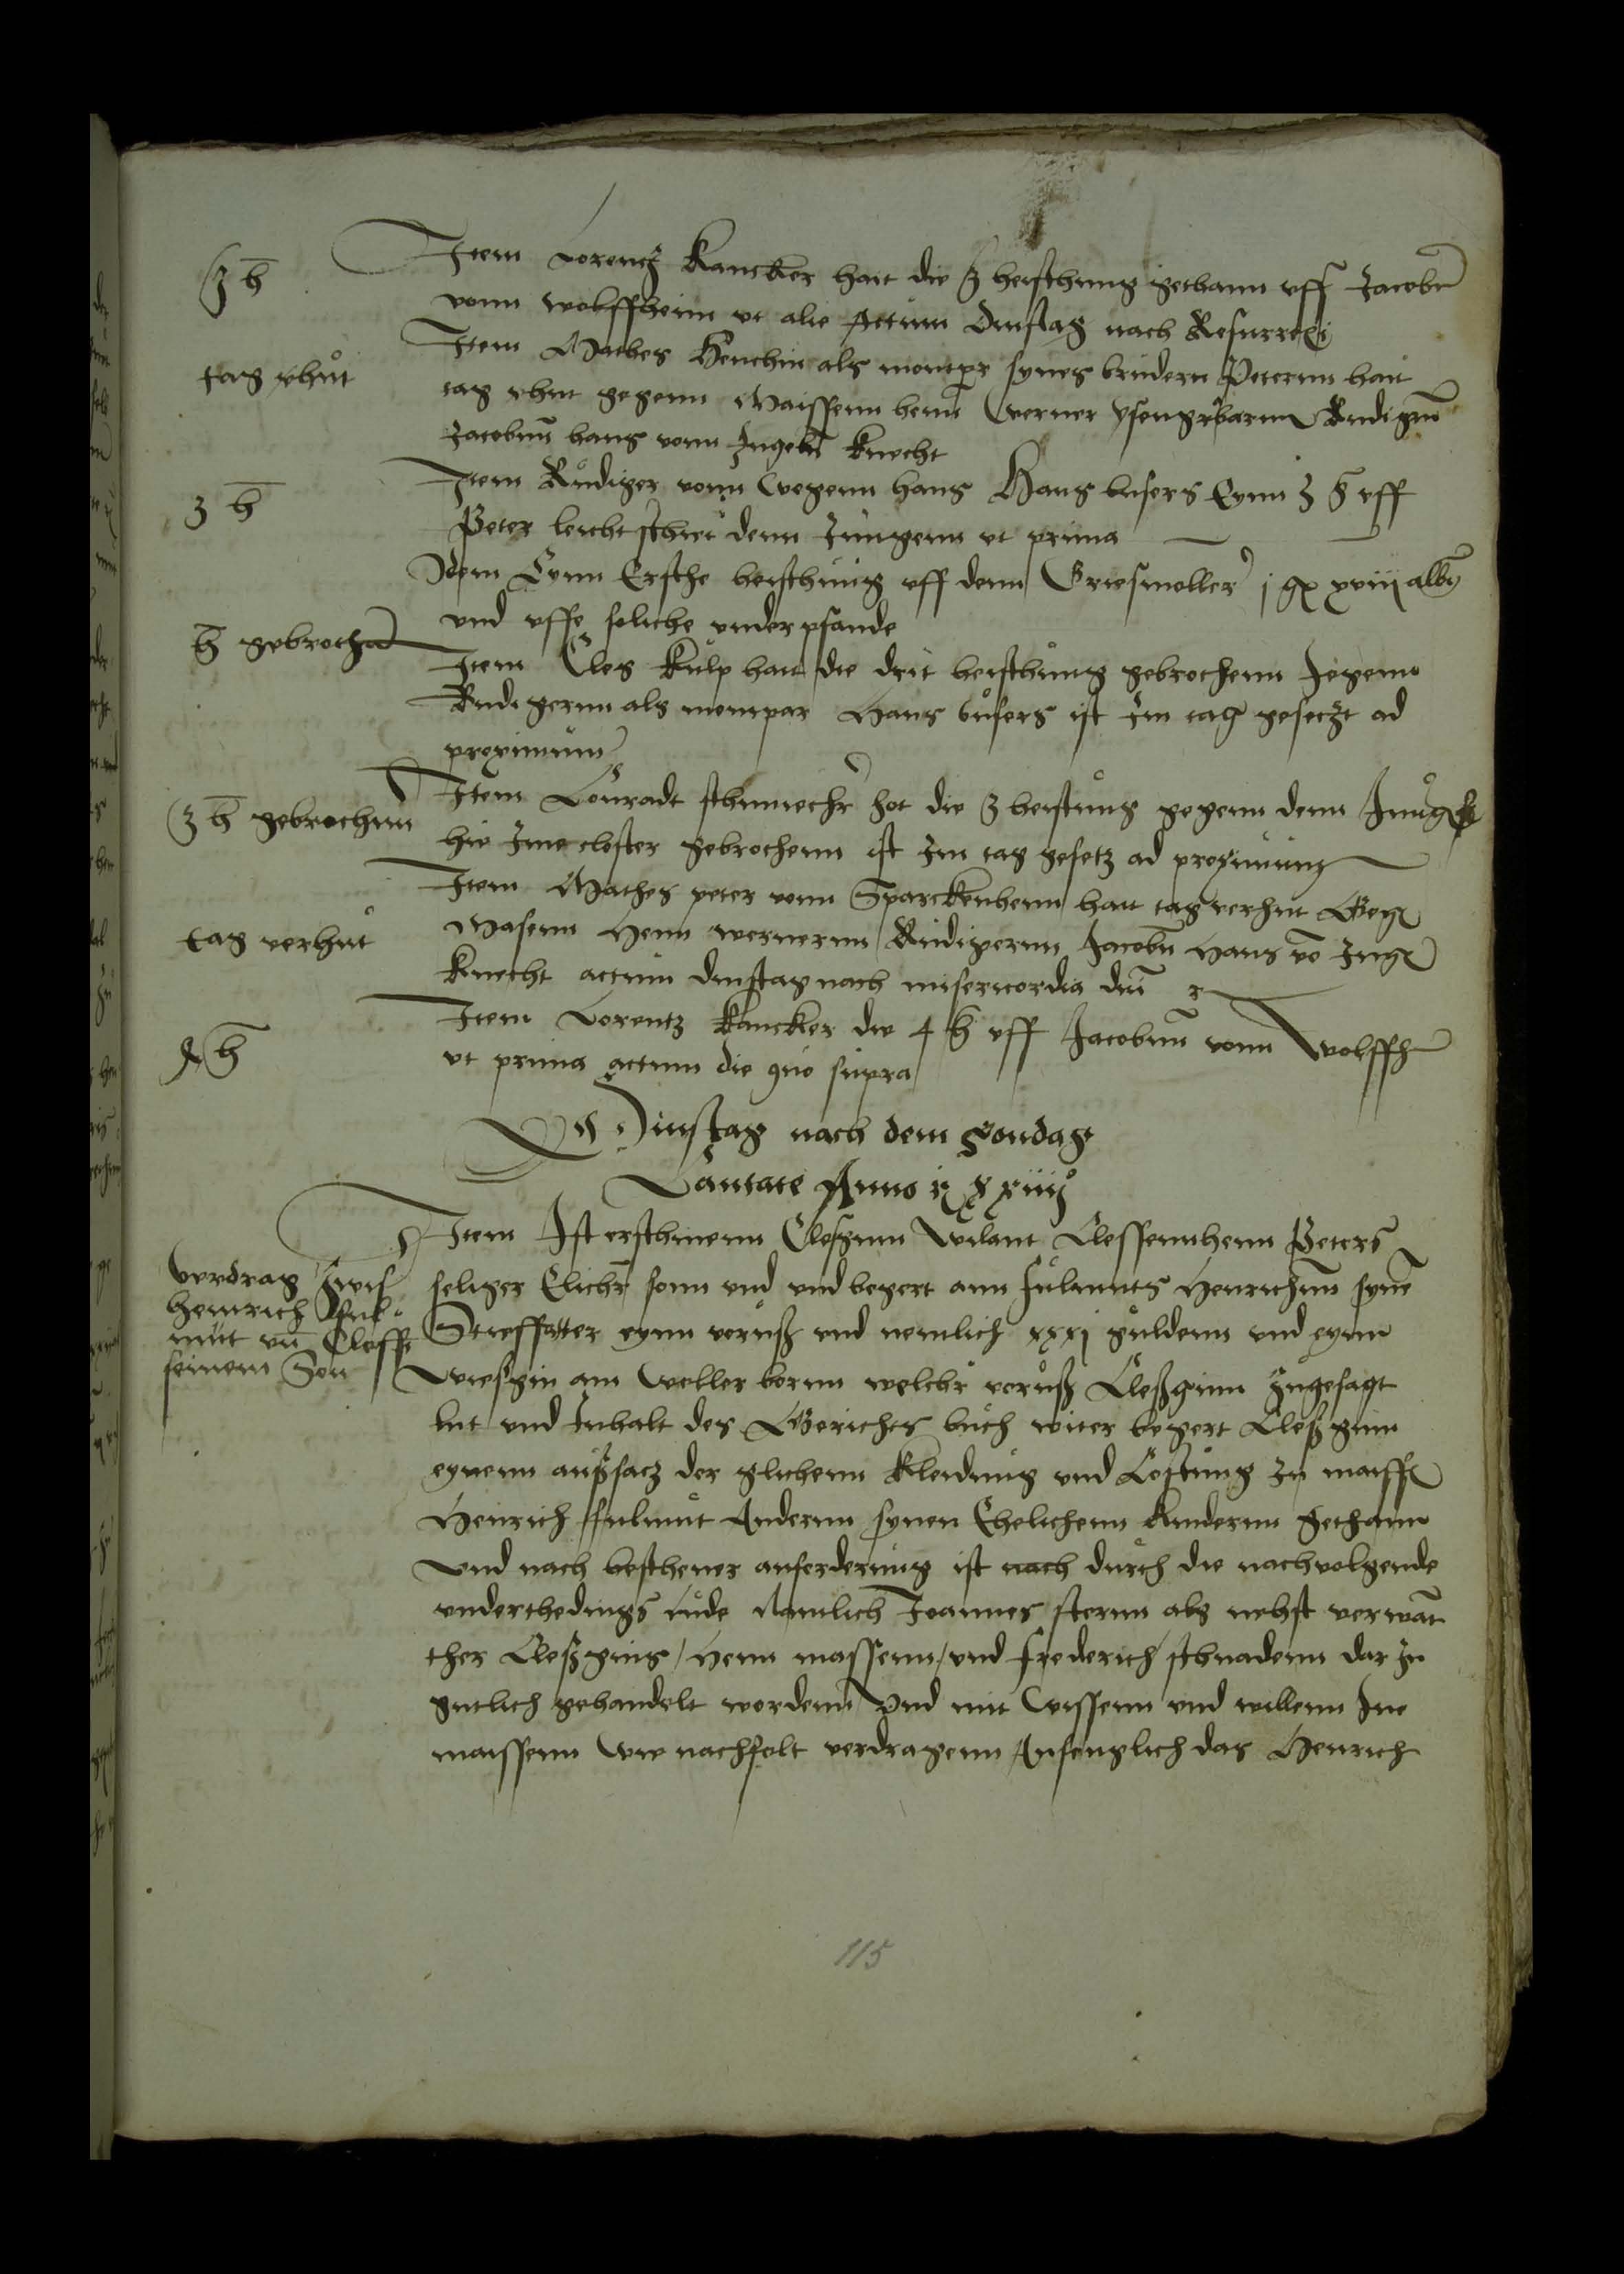 3 h
Item Lorentz Kancker hait die 3 heischung gethann uff Jacobn
vonn Wolffheim ut alie Actum Dinstag nach Resurrexi
tag vhut
Item Mathes Henchin als momper synes brudern Petternn hait
tag vhut gegenn Maissenn henn Werner Rudigern
Jacobnn hans vonn Ingeln knecht
3 h
Item Rudiger vonn wegenn hans Hans busers Eynn 3 h uff
Peter leichtschiet denn Jungenn ut prima
Idem Eynn Ersthe heischung uff denn Griesmoller j g xviij alb
und uff soliche underpfande
h gebrochen
Item Cles Kulp hait die drit heischung gebrochenn Jegenn
Rudigernn als momper Hans busers ist Im tag gesetzt ad
proximum
3 h gebrochenn
Item Conradt hot die 3 heistung gegenn denn
hie Ime closter gebrochenn ist Im tag gesetz ad proximum
tag verhut
Item Mathes peter vonn Sparckenhenn hait tag verhut Geg
Masenn Henn wernernn Rudigernn Jacobn Hans vo Ing
knecht actum Dinstag nach misericordia dni
4 h
Item Lorentz Kancker die 4 h uff Jacobnn vonn Wolffh
ut prima actum die quo supra
Dinstag nach dem Sondag
Cantate Anno xxiiij
Verdrag zwis
henrich ful
mut un Cleffe
seinem Son
Item Ist erschinenn Cleßginn Clessennhenn Peters
seliger Elicher sonn und und begert ann fulmuts Henrichenn syne
Stieffatter eynn voruß und nemlich xxxj guldenn und eynn
wießgin am weller bornn welcher voruß Cleßginn Zugesagt
lut und Inhalt des Gerichts buch witer begert Cleßginn
eynenn außsatz der glichenn kleidung und Costung Zu maiss
Henrich ffulmut Andernn synen Ehelichenn kindernn gethann
Und nach beschener anforderung ist nach durch die nachvolgende
underthedings Lude Namlich Joannes sternn als nehst verwan
ther Cleßgins / Henn massenn / und Frederich schnadenn dar Zu
gutlich gehandelt wordenn Und mit wissenn und willenn Ine
maissenn wie nachfolt verdragenn Anfenglich das Henrich
115